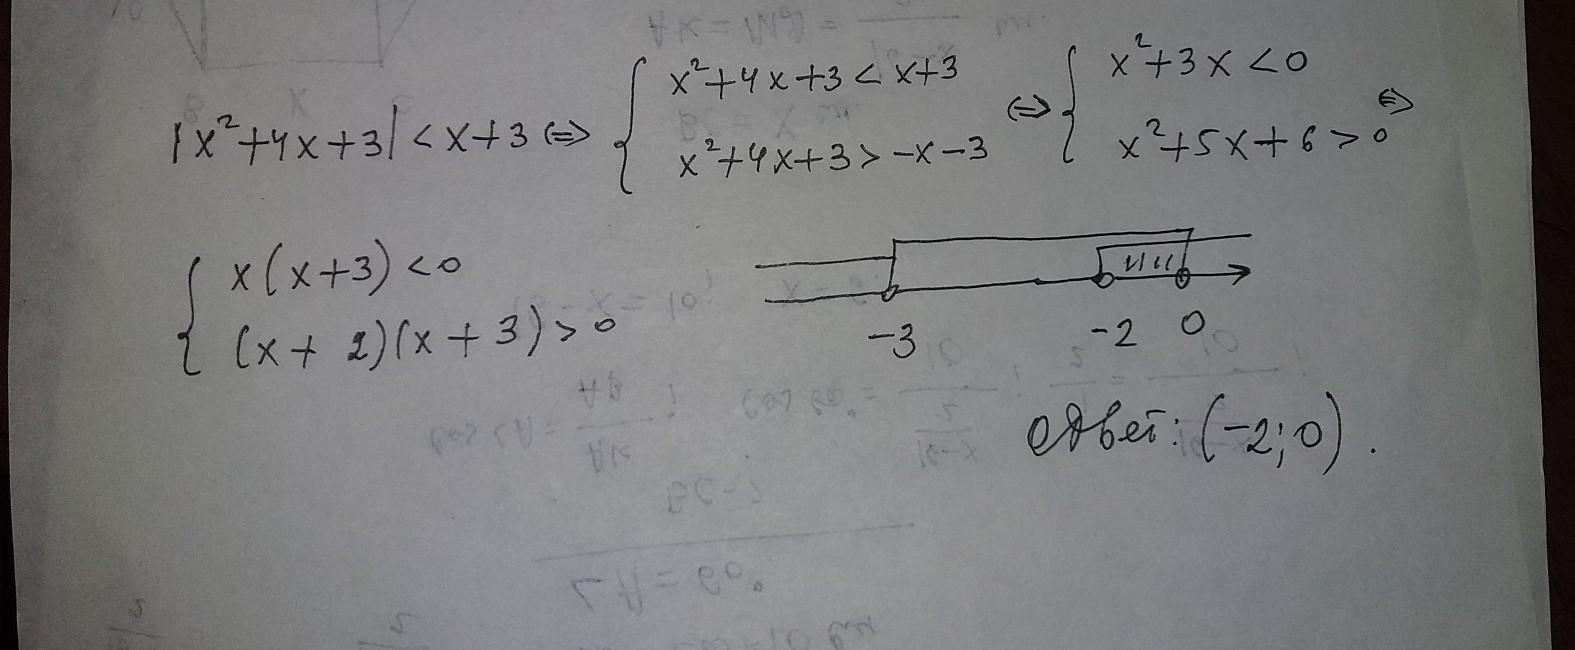 |x²+4x+3| < x+3 ⇔ { x²+4x+3 < x+3 ⇔ { x²+3x < 0
x²+4x+3 > -x-3 x²+5x+6 > 0 ⇔
{ x(x+3) < 0
(x+2)(x+3) > 0
-3 -2 0
Ответ: (-2; 0).